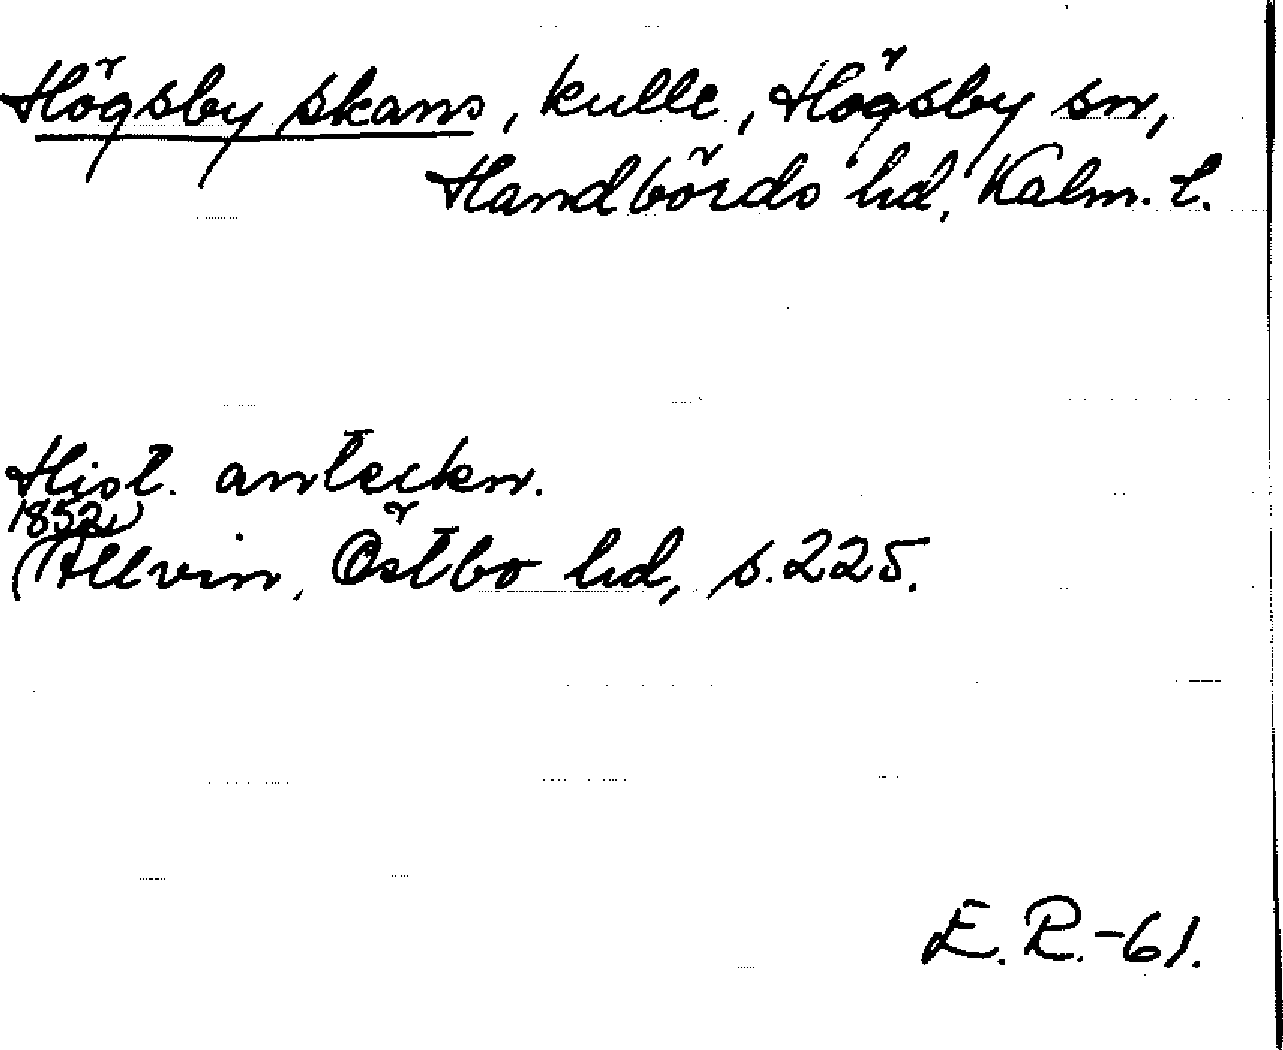 Högsby skans, kulle, Högsby sn,
Handbörds hd, Kalm. l.
Hist. anteckn.
1852,
(Allvin, Östbo hd, s. 225.
E. R. -61.